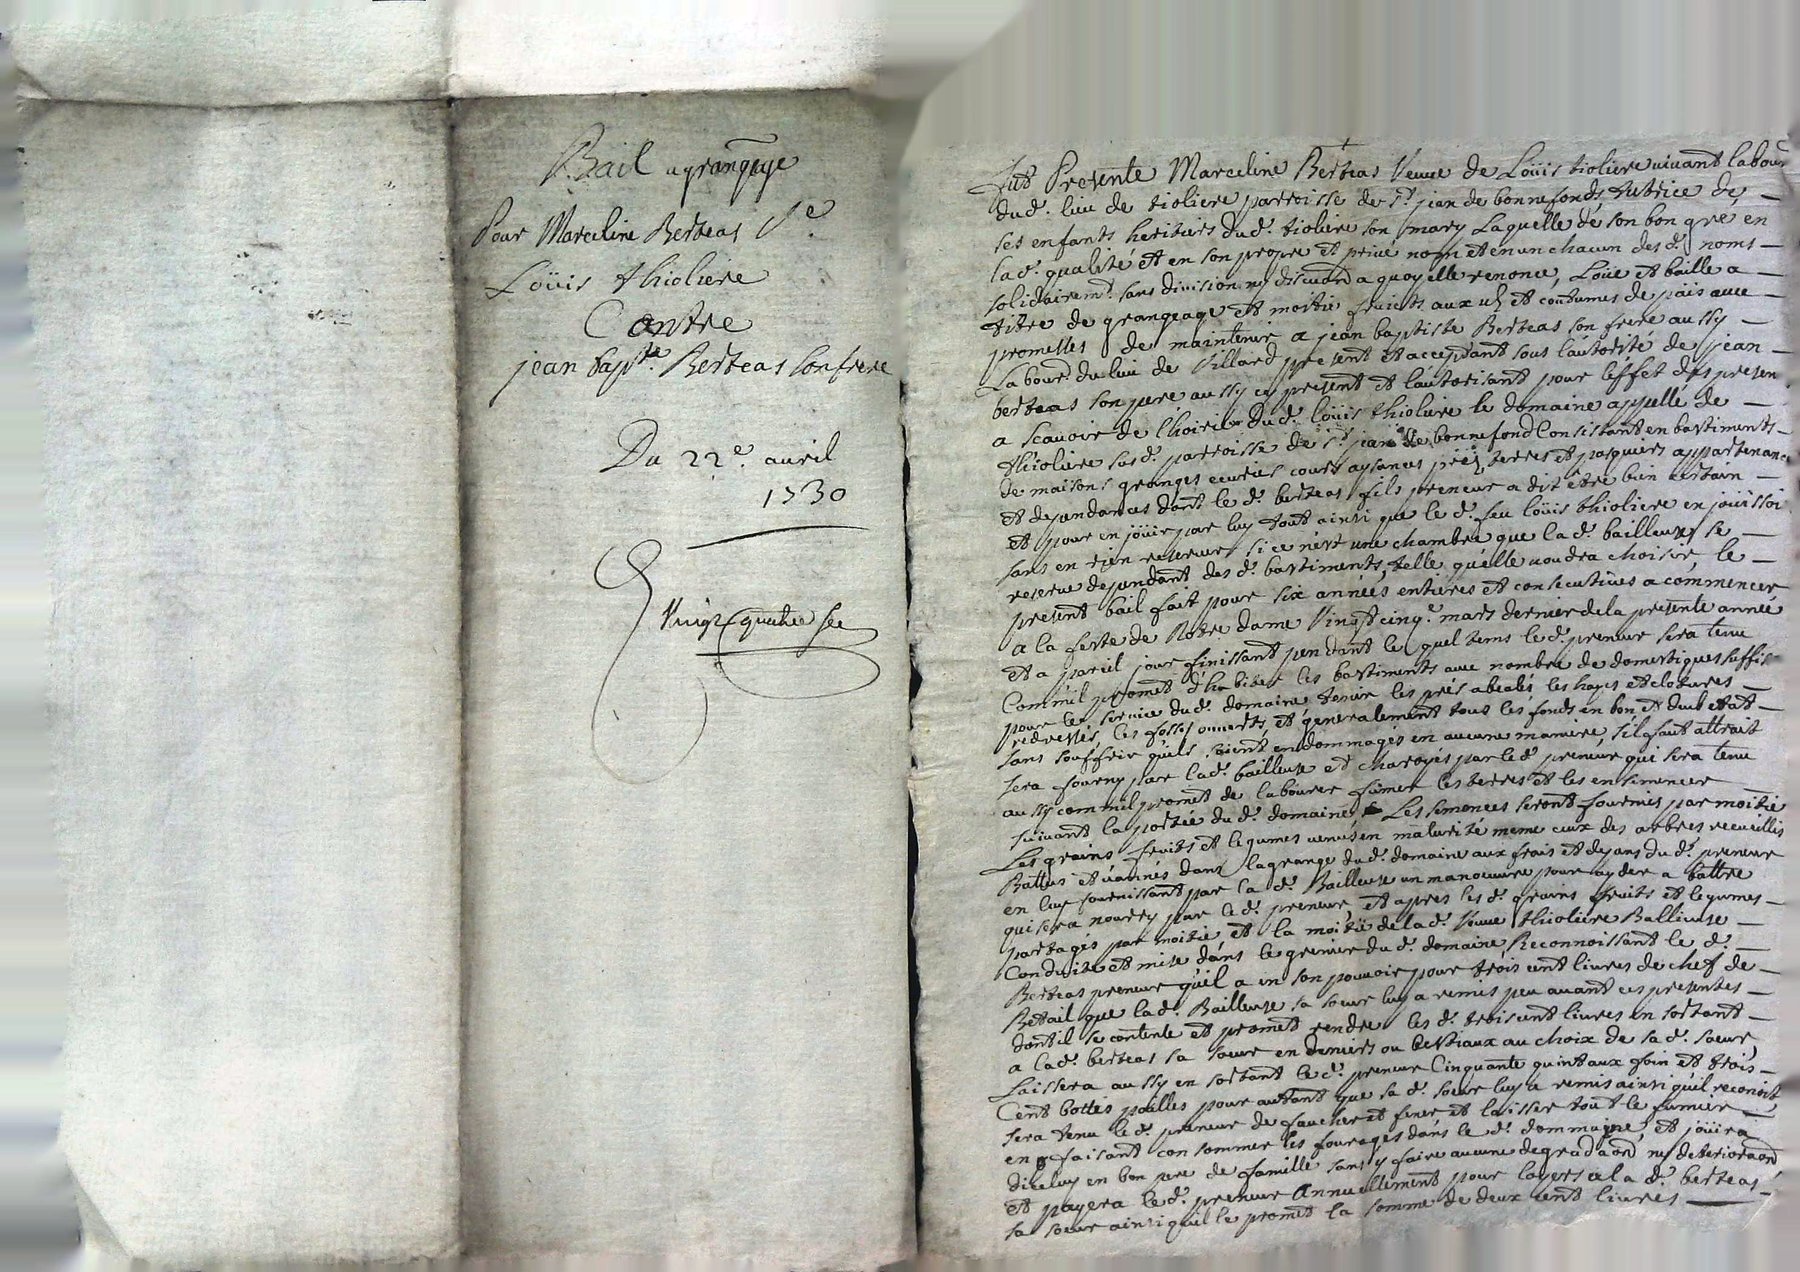 Bail a grangage
Pour Marceline Berteas Ve.
Loüis thioliere
Contre
jean bapte. Berteas son frere
Du 22e. auril
1730
Vingt quatre
Fut Presente Marceline Berteas Veuue de Loüis tioliere uiuant labour
dud. lieu de tioliere parroisse de st. jean de bonnefonds, tutrice de
ses enfants heritiers dud. tioliere son mary Laquelle de son bon gré en
lad. qualité et en son propre et priué nom et en un chacun desd. noms
solidairemt. sans diuision ny discution a quoy elle renonce, Loüe et baille a
titre de grangeage et moitié fruicts aux us et coutumes de païs auec
promesses de maintenir a jean baptiste Berteas son frere aussy
Labour. du lieu de Villard present et acceptant sous l'autorité de jean
berteas son pere aussy cy present et l'autorisant pour l'effet des presen
a scauoir de l'hoirie dud. loüis thioliere le domaine appellé de
thioliere susd. parroisse de st. jean de bonnefond Consistant en bastiments
de maisons granges ecuries cours aysances préz terres et pasquiers appartenance
et dependances dont le d. berteas fils preneur a dit être bien certain
et pour en joüir par luy tout ainsi que le d. feu loüis thioliere en joüissoi
sans en rien reseruer si ce n'est une chambre que lad. bailleuse se
reserue dependant desd. bastiments, telle qu'elle uoudra choisir, le
present bail fait pour six années entieres et consecutiues a commencer
a la feste de Notre dame Vingt cinqe. mars dernier de la presente année
et a pareil jour finissant pendant lequel tems led. preneur sera tenu
Comm'il promet d'habiter les bastiments auec nombre de domestiques suffis
pour le seruice dud. domaine, tenir les prés abealés les hayes et clotures
redressés, les fossés ouuerts, et generalement tous les fonds en bon et dueb etat
sans souffrir qu'ils soient endommages en aucune maniere, s'il faut attrait
sera fourny par lad. bailleuse et charoyés par led. preneur qui sera tenu
aussy comm'il promet de labourer fumer les terres et les ensemencer
suiuant la portée dud. domaine Les semences seront fournies par moitié
Les grains fruits et legumes uenus en maturité meme ceux des arbres recueillis
Battus et uannés dans la grange dud. domaine aux frais et depans dud. preneur
en luy fournissant par la d. Bailleuse un manoeuure pour ayder a battre
qui sera nourry par le d. preneur, et apres lesd. grains fruits et legumes
partagés par moitié et la moitié de lad. Veuue thioliere Bailleuse
Conduite et mise dans le grenier dud. domaine Reconnoissant le d.
Berteas preneur qu'il a en son pouuoir pour trois cent liures de chef de
Betail que lad. Bailleuse sa soeur luy a remis peu auant ces presentes
dont il se contente et promet rendre les d. trois cent liures en sortant
a lad. berteas sa soeur en deniers ou bestiaux au choix de sad. soeur,
Laissera aussy en sortant led. preneur Cinquante quintaux foin et trois
Cent bottes pailles pour autant que sa d. soeur luy a remis ainsi qu'il reconoit,
sera tenu le d. preneur de faucher et fener et laisser tout le fumier
en faisant consommer les fourages dans le d. dommaine, et joüira
diceluy en bon pere de famille sans y faire aucune degradaon ny deterioraon
et payera le d. preneur Annuellement pour layers a la d. berteas
sa soeur ainsi qu'il le promet la somme de deux cent liures